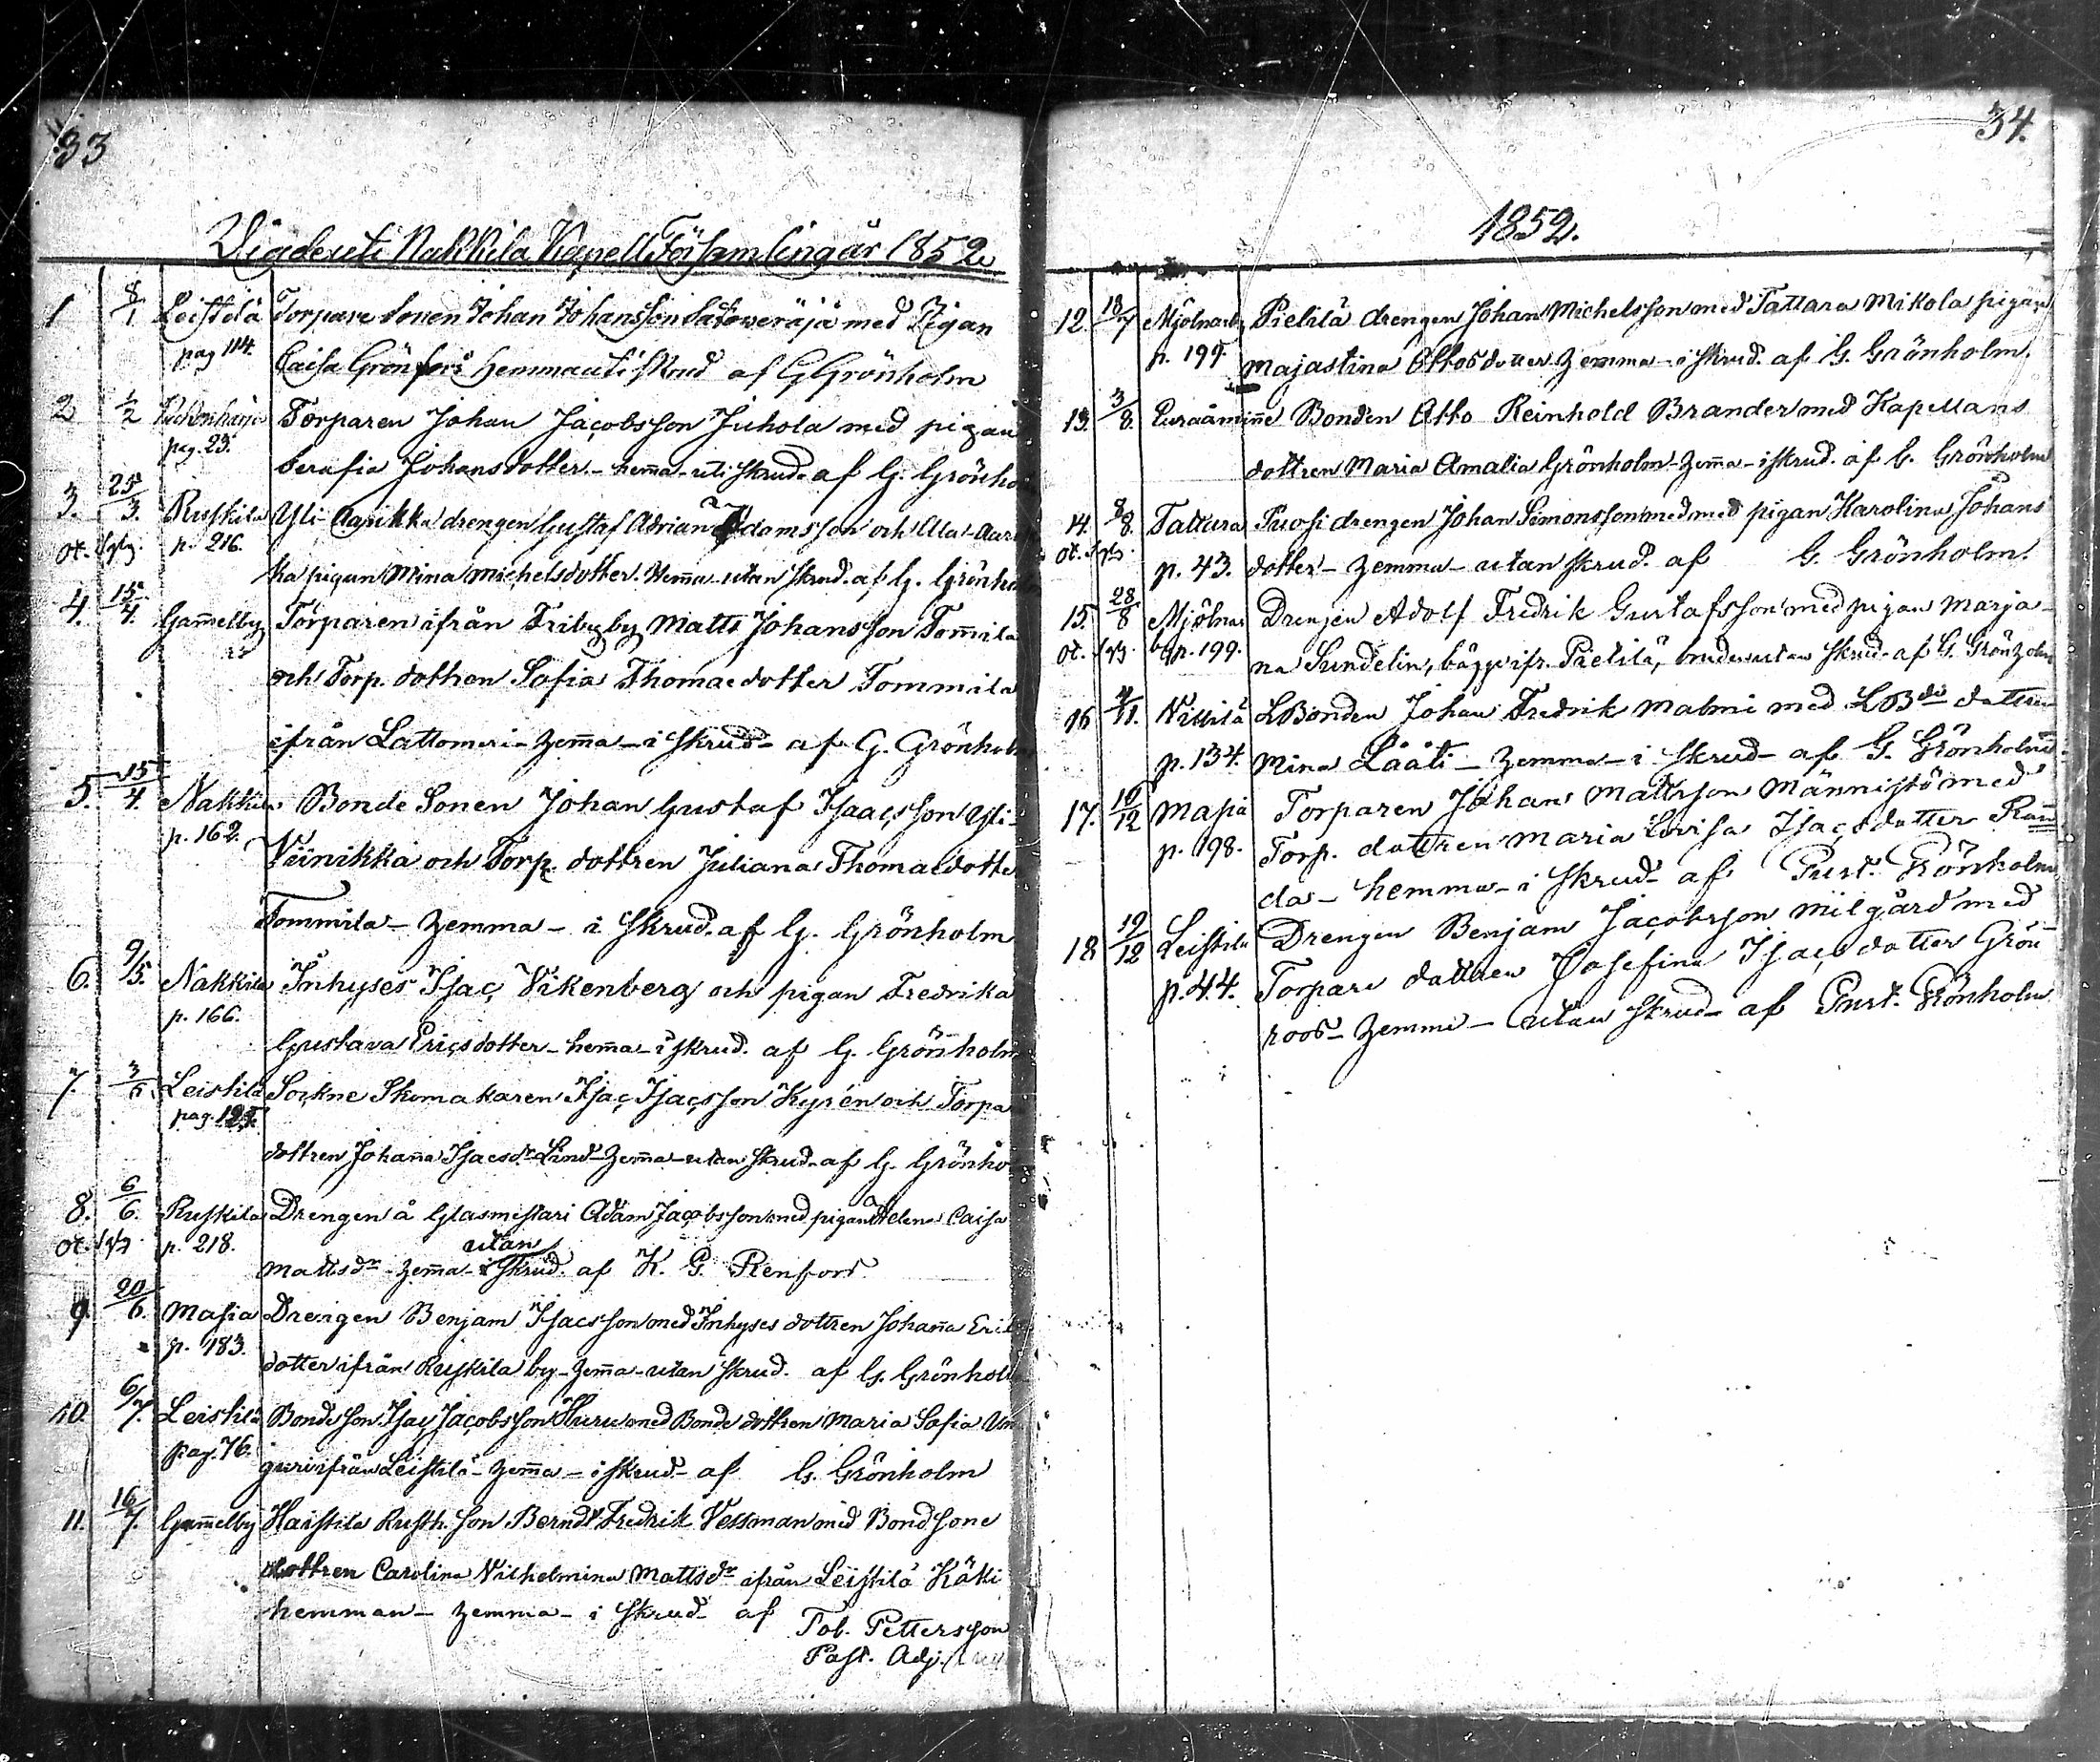 33
Vigde uti Nakkila Kapell Församling år 1852.
1 8/1 Leistilä Torpare Sonen Johan Johansson med Pigan
pag 114. Caisa Grönfors hemma uti Skrud af G Grönholm
2 1/2 pag. 23. Torparen Johan Jacobsson Juhola med pigan
Serafia Johansdotter - hem̄a - uti skrud. af G. Grönho
3. 25/3. Ruskila Yli Aarikka drengen Gustaf Adrian Adamsson och Ala-Aar
ot. p. 216. ka pigan Mina Michelsdotter. Hem̄a - utan skrud. af G. Grönholm
4. 15/4. Gam̄elby Torparen ifrån Friby by Matts Johansson Tom̄ila
och Torp. dottren Sofia Thomasdotter Tommila
ifrån Lattomeri - hem̄a - i skrud - af G. Grönholm
5. 15/4. Nakkila Bonde Sonen Johan Gustaf Isaacsson Yli-
p. 162. Viinikka och Torp. dottren Juliana Thomasdotte
Tommila - hemma - i skrud. af G. Grönholm
6. 9/5. Nakkila Inhyses Isac Vikenberg och pigan Fredrika
p. 166. Gustava Ericsdotter - hem̄a - i skrud. af G. Grönholm
7. Leistilä Sockne Skomakaren Isac Isacsson Kyrén och Torpa
pag. dottren Johan̄a Isacsdr Lind - hem̄a - utan skrud - af G. Grönho
8. 6/6. Ruskila Drengen å Glasmestari Adam Jacobsson med pigan Helena Caisa
ot. p. 218. utan
Mattsdr - hem̄a - i skrud. af K. G. Renfors.
9. 20/6. Masia Drengen Benjam Isacsson med Inhyses dottren Johan̄a Eriks
p. 183. dotter ifrån Ruskila by - hem̄a - utan skrud. af G. Grönholm
10. 6/7. Leistilä Bonde son Isac Jacobsson Huru med Bonde dottren Maria Sofia Un
pag. 76. guri ifrån Leistilä - hem̄a - i skrud - af G. Grönholm
11. 16/7. Gam̄elby Haistila Rusth. son Berndt Fredrik Vessman med Bondsone
dottren Carolina Vilhelmina Mattsdr ifrån Leistilä Käki
hemman - hemma - i skrud - af Tob. Pettersson
Past. Adj.
34.
1852.
12. 18/7 Mjölnareby Pietilä drengen Johan Michelsson med Tattara Mikola pigan
p. 199. Majastina Ottosdotter hemma - i skrud. af G. Grönholm.
13. 3/8. Euraåmin̄e Bonden Otto Reinhold Brander med Kapellans
dottren Maria Amalia Grönholm - hem̄a - i skrud. af G. Grönholm
14. 8/8. Tattara Puosi drengen Johan Simonsson med med pigan Karolina Johans
ot. p. 43. dotter - hemma - utan skrud. af G. Grönholm.
15. 28/8 Mjölnare Drengen Adolf Fredrik Gustafsson med pigan Marja-
ot. by p. 199. na Sundelin, bägge ifr. Pietilä, utan skrud - af G. Grönholm
16 4/11. Villilä LBonden Johan Fredrik Malmi med LBds dottren
p. 134. Mina Lääti - hemma - i skrud - af G. Grönholm
17. 10/12 Masia Torparen Johan Mattsson Männistö med
p. 198. Torp. dottren Maria Lovisa Isacsdotter Ran̄
da - hemma - i skrud - af Gust. Grönholm
18 19/12 Leistilä Drengen Benjam Jacobsson Miilgård med
p. 44. Torpare dottren Josefina Isacsdotter Grön
roos - hemma - utan skrud - af Gust. Grönholm